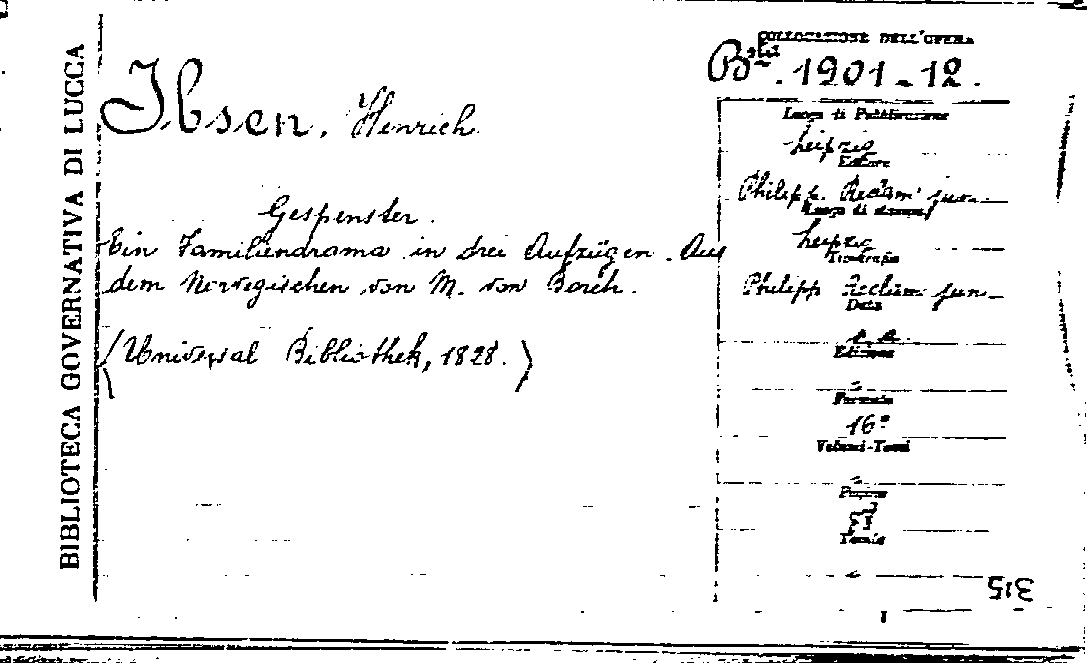 BIBLIOTECA GOVERNATIVA DI LUCCA
COLLOCAZIONE DELL'OPERA
Bta. 1901-12.
Ibsen, Henrich
Gespenster.
Ein Familiendrama in drei Aufzügen. Aus
dem Norvegischen von M. von Borch.
(Universal Bibliothek, 1828.)
Luogo di Pubblicazione
Leipzig
Editore
Philipp. Reclam jun.
Luogo di stampa
Leipzig
Tipografia
Philipp Reclam jun.
Data
s. a.
Edizione
Formato
16º
Volumi-Tomi
Pagine
Tavole
315